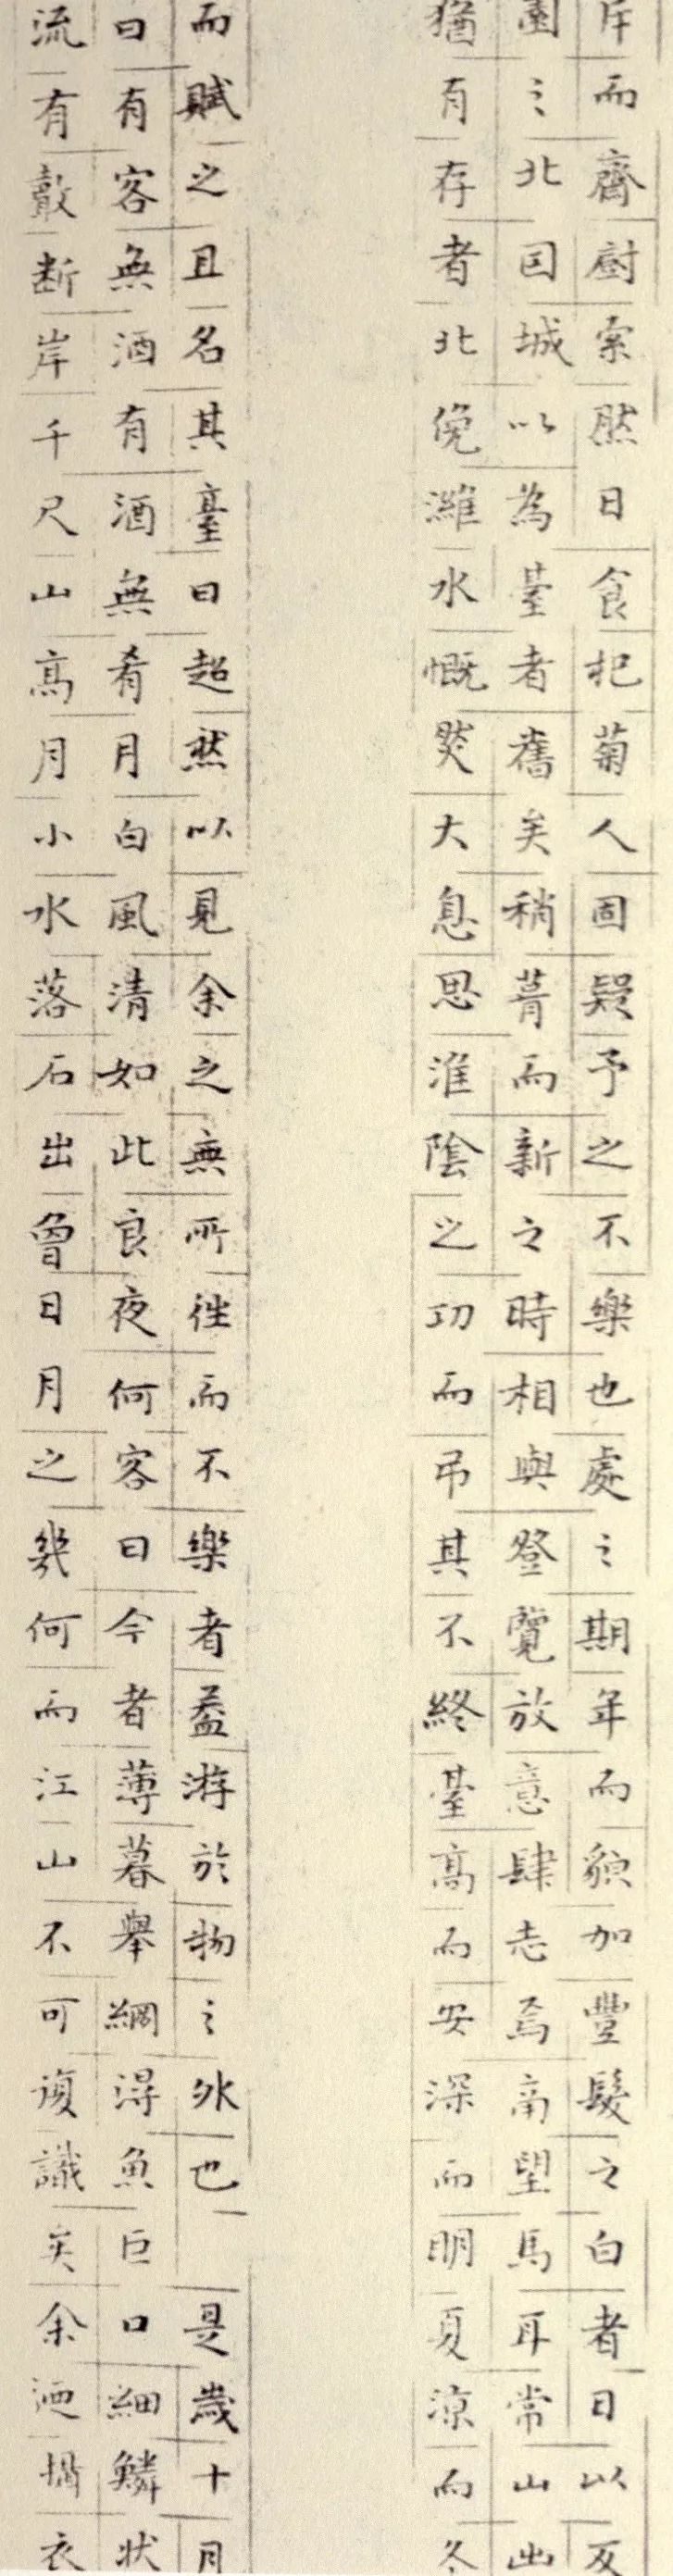 斥而齋廚索然日食杞菊人固疑予之不樂也處之期年而貌加豐髮之白者日以反
園之北因城以為臺者舊矣稍葺而新之時相與登覽放意肆志焉南望馬耳常山出
猶有存者北俛濰水慨然大息思淮陰之功而弔其不終臺高而安深而明夏涼而冬
而賦之且名其臺曰超然以見余之無所往而不樂者蓋游於物之外也 是歲十月
曰有客無酒有酒無肴月白風清如此良夜何客曰今者薄暮舉網得魚巨口細鱗狀
流有聲斷岸千尺山高月小水落石出曾日月之幾何而江山不可復識矣余迺攝衣